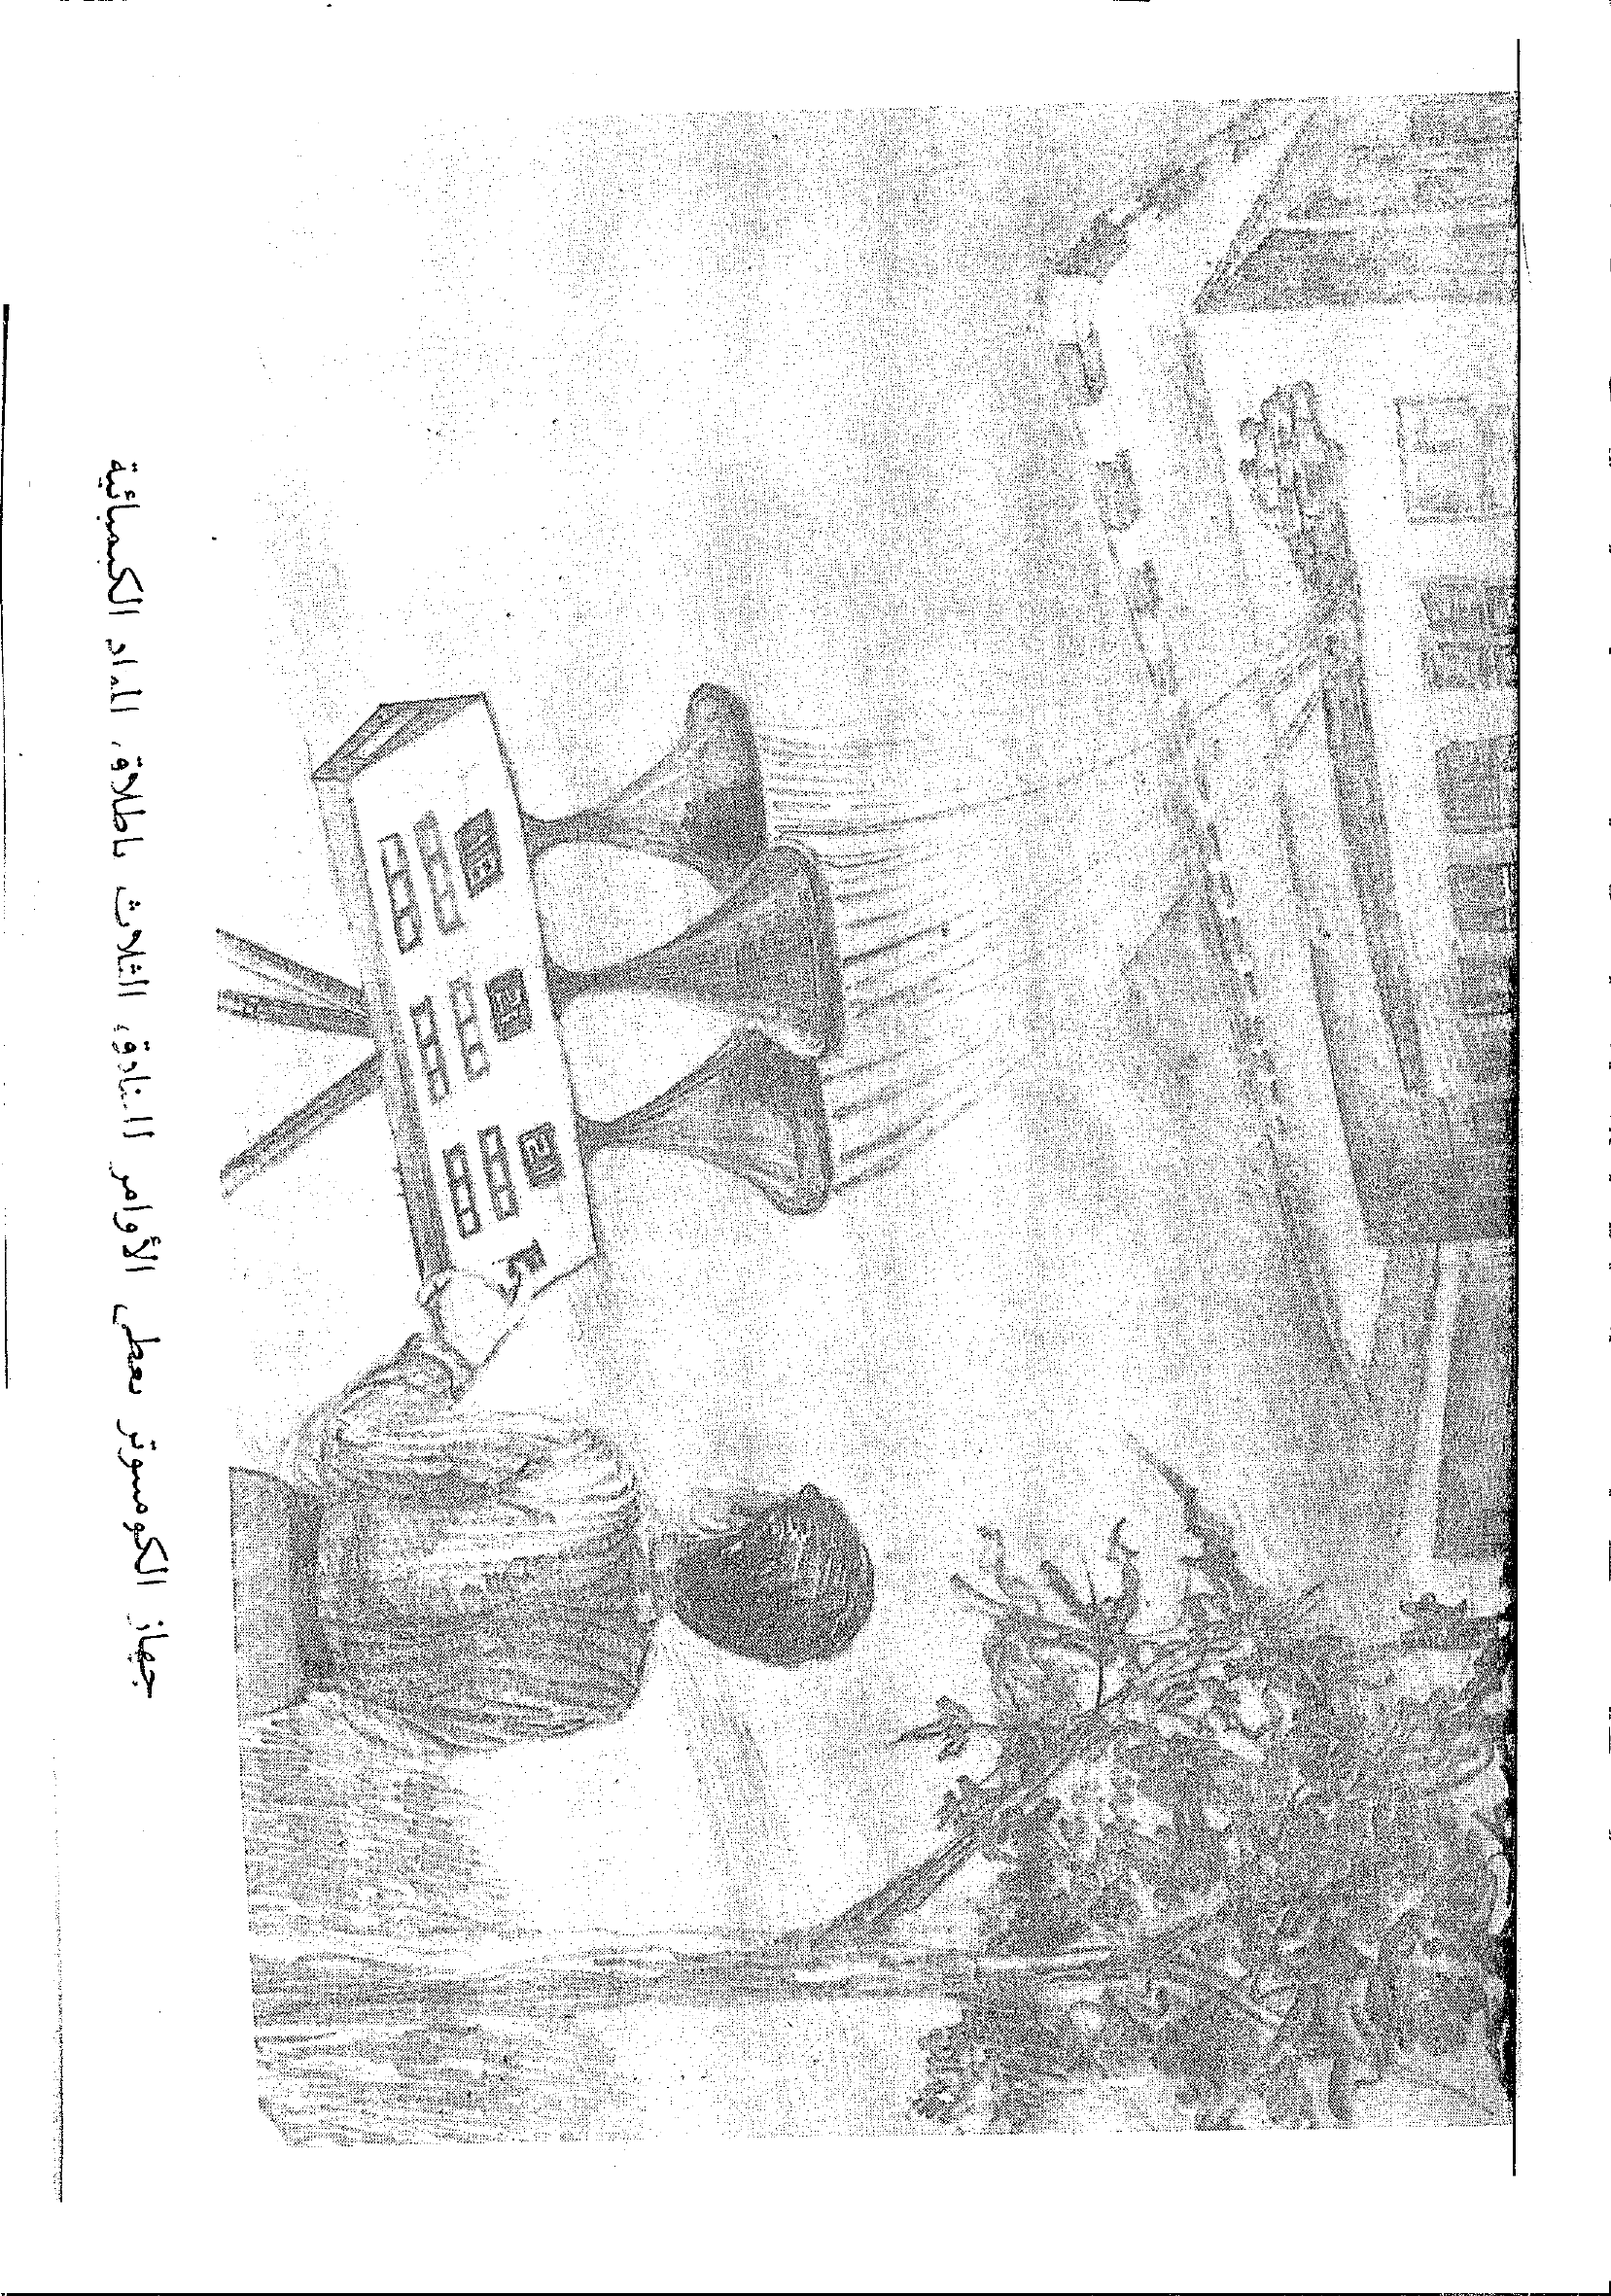 جهاز الكومبيوتر يعطي الأوامر للبنادق الثلاث بإطلاق المواد الكيميائية